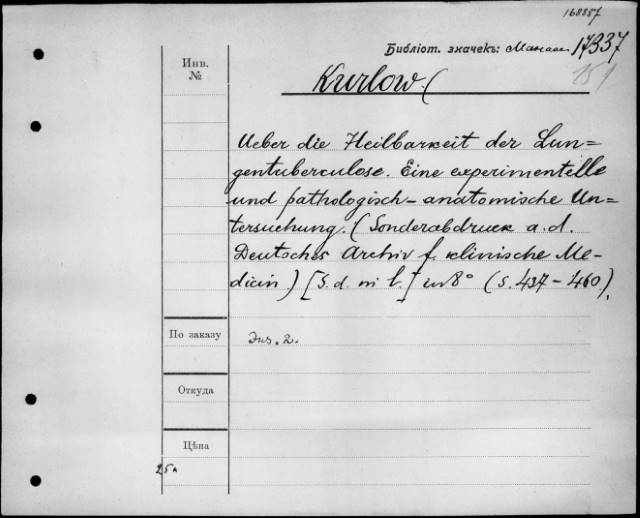 168887
Библіот. значекъ: 17337
Инв.
№
Kurlow. (
Ueber die Heilbarkeit der Lun=
gentuberculose. Eine experimentelle
und pathologisch-anatomische Un=
tersuchung. (Sonderabdruck a. d.
Deutsches Archiv f. klinische Me-
dicin) [S. d. ni l.] in 8° (S. 437-460).
По заказу
Экз. 2.
Откуда
Цѣна